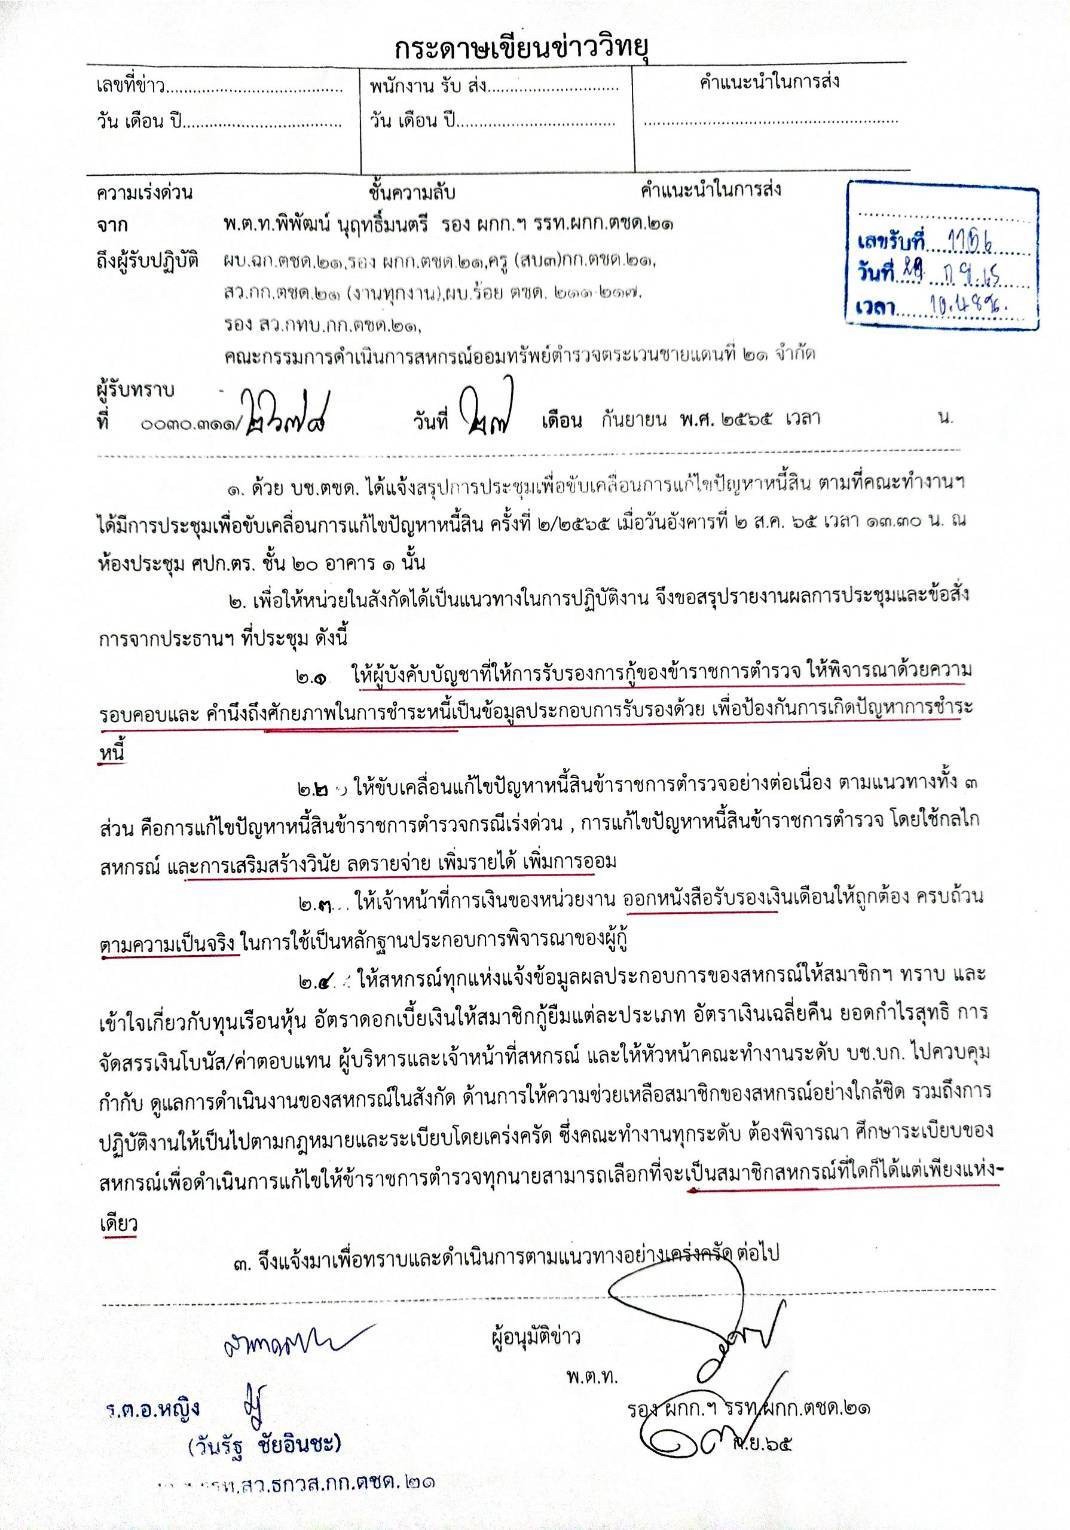 กระดาษเขียนข่าววิทยุ
เลขที่ข่าว........................................ พนักงาน รับ ส่ง............................. คำแนะนำในการส่ง
วัน เดือน ปี................................... วัน เดือน ปี................................... ........................................................
ความเร่งด่วน ชั้นความลับ คำแนะนำในการส่ง
จาก พ.ต.ท.พิพัฒน์ นุฤทธิ์มนตรี รอง ผกก.ฯ รรท.ผกก.ตชด.๒๑
ถึงผู้รับปฏิบัติ ผบ.ฉก.ตชด.๒๑,รอง ผกก.ตชด.๒๑,ครู (สบ๓)กก.ตชด.๒๑,
สว.กก.ตชด.๒๑ (งานทุกงาน),ผบ.ร้อย ตชด. ๒๑๑-๒๑๗,
รอง สว.กทบ.กก.ตชด.๒๑,
คณะกรรมการดำเนินการสหกรณ์ออมทรัพย์ตำรวจตระเวนชายแดนที่ ๒๑ จำกัด
เลขรับที่ 1106
วันที่ 29 ก.ย. 65
เวลา 10.48น.
ผู้รับทราบ -
ที่ ๐๐๓๐.๓๑๑/๒๖๗๘ วันที่ ๒๗ เดือน กันยายน พ.ศ. ๒๕๖๕ เวลา น.
๑. ด้วย บช.ตชด. ได้แจ้งสรุปการประชุมเพื่อขับเคลื่อนการแก้ไขปัญหาหนี้สิน ตามที่คณะทำงานฯ
ได้มีการประชุมเพื่อขับเคลื่อนการแก้ไขปัญหาหนี้สิน ครั้งที่ ๒/๒๕๖๕ เมื่อวันอังคารที่ ๒ ส.ค. ๖๕ เวลา ๑๓.๓๐ น. ณ
ห้องประชุม ศปก.ตร. ชั้น ๒๐ อาคาร ๑ นั้น
๒. เพื่อให้หน่วยในสังกัดได้เป็นแนวทางในการปฏิบัติงาน จึงขอสรุปรายงานผลการประชุมและข้อสั่ง
การจากประธานฯ ที่ประชุม ดังนี้
๒.๑ ให้ผู้บังคับบัญชาที่ให้การรับรองการกู้ของข้าราชการตำรวจ ให้พิจารณาด้วยความ
รอบคอบและ คำนึงถึงศักยภาพในการชำระหนี้เป็นข้อมูลประกอบการรับรองด้วย เพื่อป้องกันการเกิดปัญหาการชำระ
หนี้
๒.๒ ให้ขับเคลื่อนแก้ไขปัญหาหนี้สินข้าราชการตำรวจอย่างต่อเนื่อง ตามแนวทางทั้ง ๓
ส่วน คือการแก้ไขปัญหาหนี้สินข้าราชการตำรวจกรณีเร่งด่วน , การแก้ไขปัญหาหนี้สินข้าราชการตำรวจ โดยใช้กลไก
สหกรณ์ และการเสริมสร้างวินัย ลดรายจ่าย เพิ่มรายได้ เพิ่มการออม
๒.๓ ให้เจ้าหน้าที่การเงินของหน่วยงาน ออกหนังสือรับรองเงินเดือนให้ถูกต้อง ครบถ้วน
ตามความเป็นจริง ในการใช้เป็นหลักฐานประกอบการพิจารณาของผู้กู้
๒.๔ ให้สหกรณ์ทุกแห่งแจ้งข้อมูลผลประกอบการของสหกรณ์ให้สมาชิกฯ ทราบ และ
เข้าใจเกี่ยวกับทุนเรือนหุ้น อัตราดอกเบี้ยเงินให้สมาชิกกู้ยืมแต่ละประเภท อัตราเงินเฉลี่ยคืน ยอดกำไรสุทธิ การ
จัดสรรเงินโบนัส/ค่าตอบแทน ผู้บริหารและเจ้าหน้าที่สหกรณ์ และให้หัวหน้าคณะทำงานระดับ บช.บก. ไปควบคุม
กำกับ ดูแลการดำเนินงานของสหกรณ์ในสังกัด ด้านการให้ความช่วยเหลือสมาชิกของสหกรณ์อย่างใกล้ชิด รวมถึงการ
ปฏิบัติงานให้เป็นไปตามกฎหมายและระเบียบโดยเคร่งครัด ซึ่งคณะทำงานทุกระดับ ต้องพิจารณา ศึกษาระเบียบของ
สหกรณ์เพื่อดำเนินการแก้ไขให้ข้าราชการตำรวจทุกนายสามารถเลือกที่จะเป็นสมาชิกสหกรณ์ที่ใดก็ได้แต่เพียงแห่ง-
เดียว
๓. จึงแจ้งมาเพื่อทราบและดำเนินการตามแนวทางอย่างเคร่งครัด ต่อไป
ผู้อนุมัติข่าว
พ.ต.ท.
รอง ผกก.ฯ รรท.ผกก.ตชด.๒๑
๒๗ ก.ย.๖๕
ร.ต.อ.หญิง
(วันรัฐ ชัยอินชะ)
รรท.สว.ธกวส.กก.ตชด.๒๑